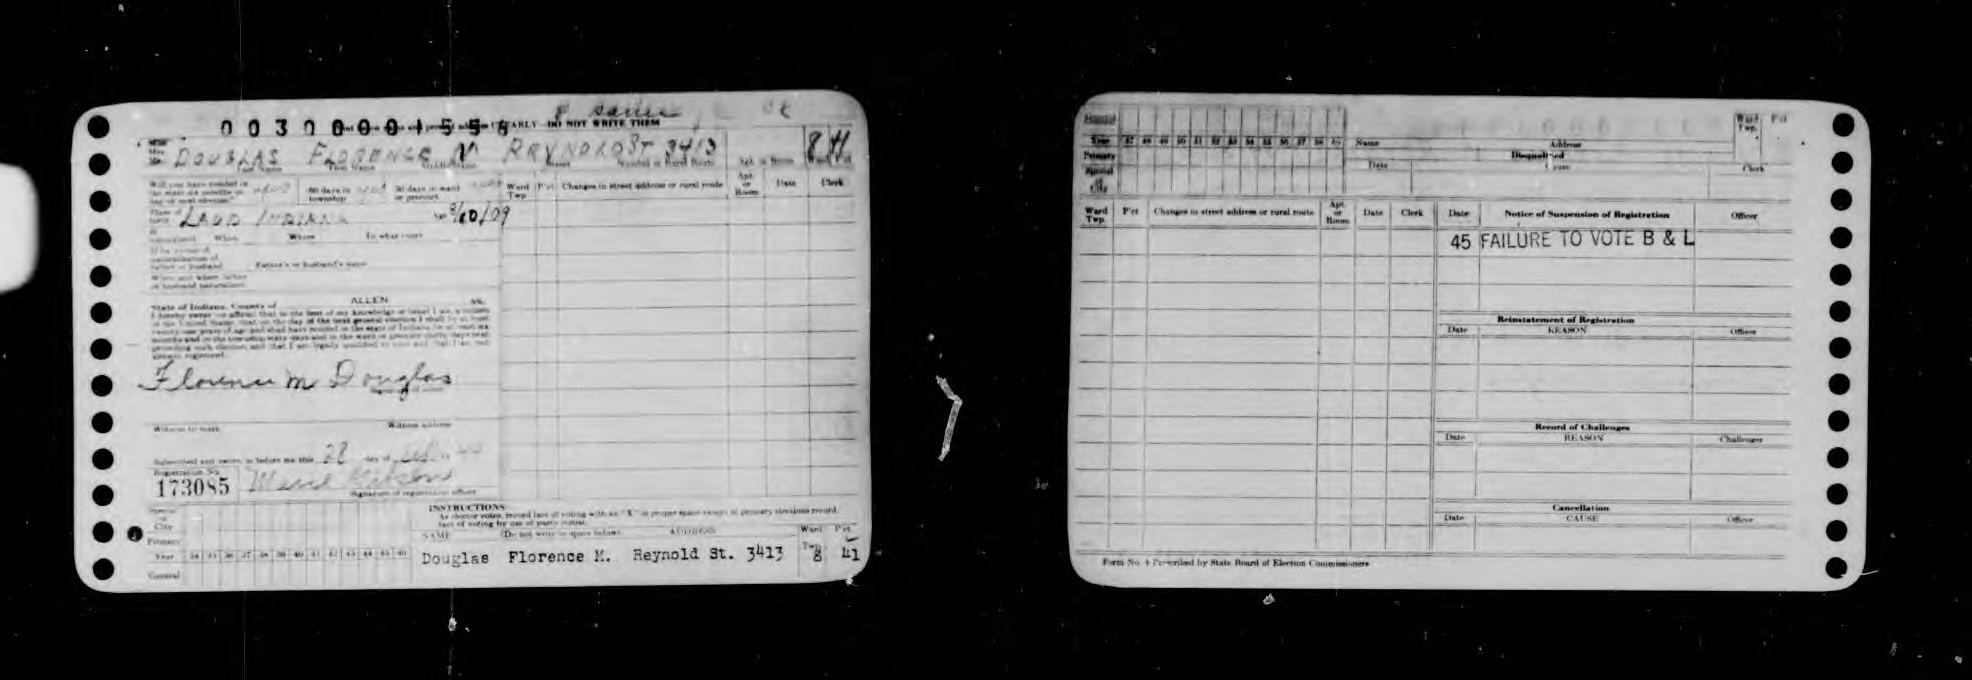 00300001556
CLEARLY — DO NOT WRITE THEM
DOUGLAS FLORENCE M REYNOLDST 3413 8 41
Last Name First Name Street Number or Rural Route Apt. or Room Ward Pct
Will you have resided in the state six months on day of next election? 60 days in township 30 days in ward or precinct
Ward Twp. P'ct Changes in street address or rural route Apt. or Room Date Clerk
Place of birth LAUD INDIANA Age 8/10/09
If naturalized When Where In what court
Father's or husband's name
State of Indiana, County of ALLEN ss.
I hereby swear (or affirm) that to the best of my knowledge or belief I am a citizen
of the United States, that on the day of the next general election I shall be at least
twenty-one years of age and shall have resided in the state of Indiana for at least six
months and in the township sixty days and in the ward or precinct thirty days next
preceding such election and that I am legally qualified to vote and that I am not
already registered.
Florence M Douglas
Signature of voter
Witness to mark Witness address
Subscribed and sworn to before me this 28 day of
Registration No.
173085
Signature of registration officer
INSTRUCTIONS
As elector votes, record fact of voting with an "X" in proper space except at primary elections record
fact of voting by use of party initial.
NAME (Do not write in space below) ADDRESS Ward Twp. P'ct
Special or City
Primary
Year 34 35 36 37 38 39 40 41 42 43 44 45 46
General
Douglas Florence M. Reynold St. 3413 8 41
General
Year 47 48 49 50 51 52 53 54 55 56 57 58 59
Primary
Special or City
Name Address Ward Twp. P'ct
Disqualified
Date Cause Clerk
Ward Twp. P'ct Changes in street address or rural route Apt. or Room Date Clerk
Date Notice of Suspension of Registration Officer
45 FAILURE TO VOTE B & L
Reinstatement of Registration
Date REASON Officer
Record of Challenges
Date REASON Challenger
Cancellation
Date CAUSE Officer
Form No. 4 Prescribed by State Board of Election Commissioners